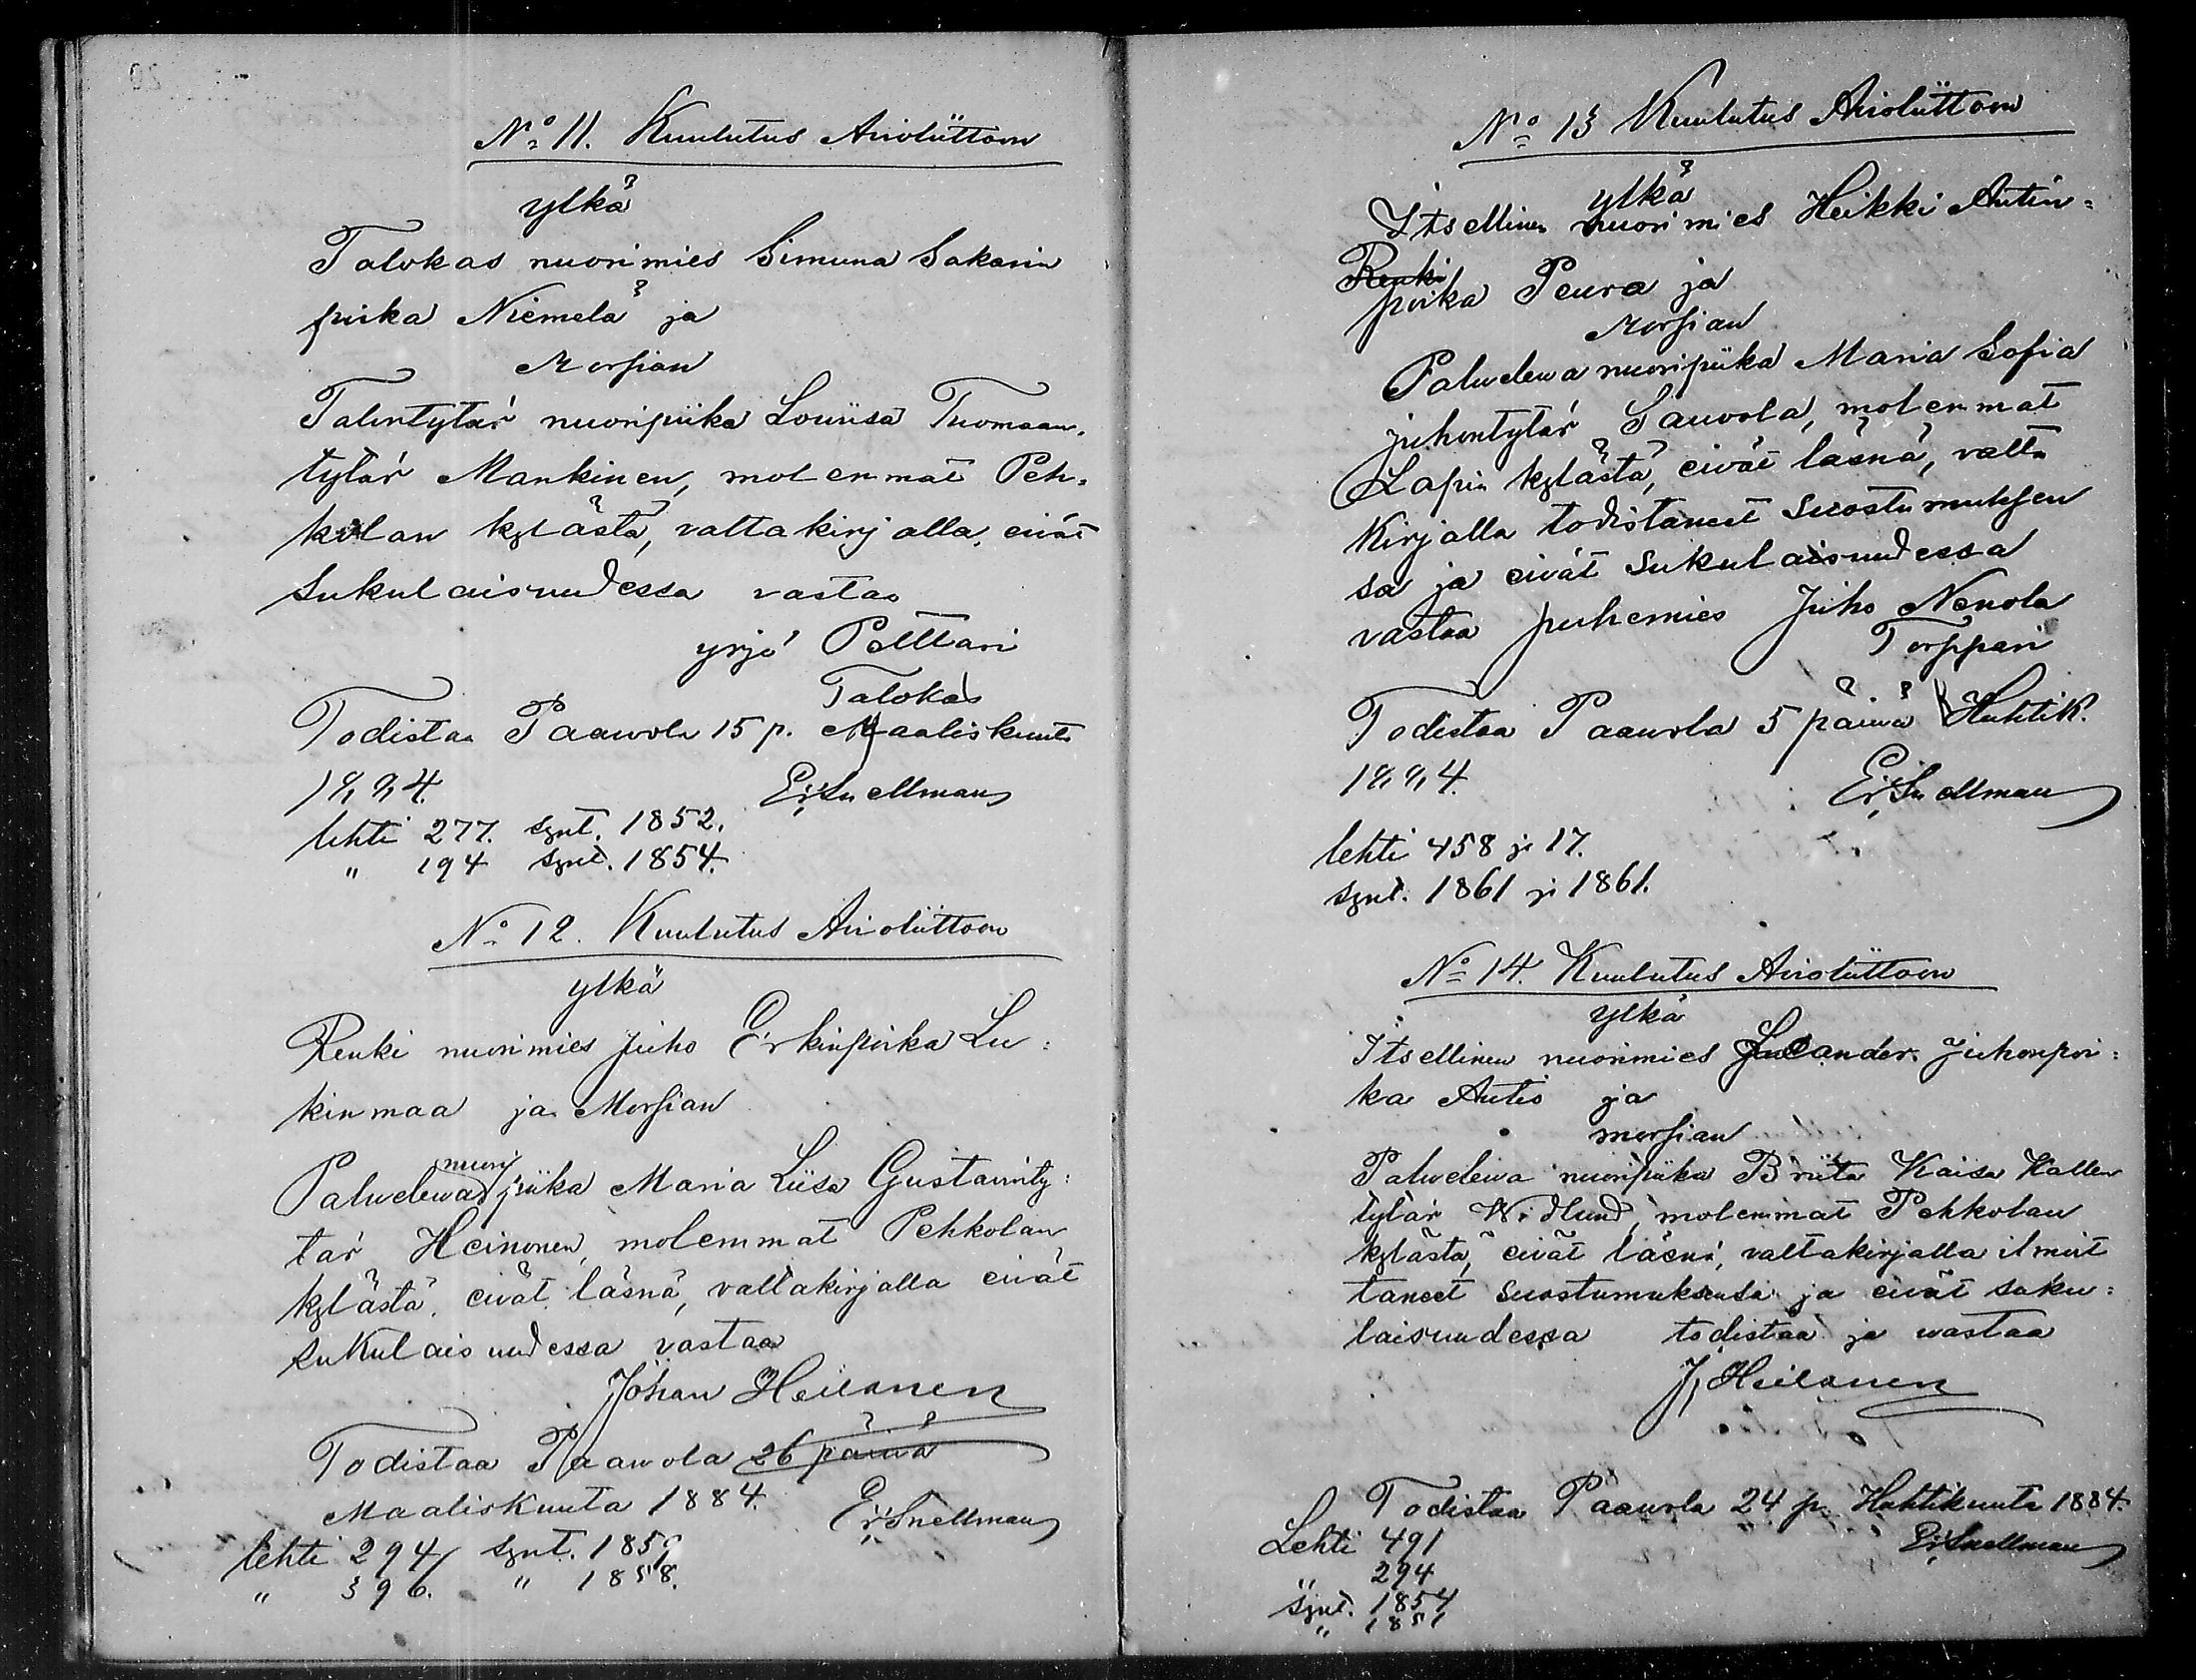 No 11. Kuulutus Avioliittoon
ylkä
Talokas nuorimies Simuna Sakarin
poika Niemelä ja
Morsian
Talontytär nuoripiika Lowiisa Tuomaan,
tytär Mankinen, molemmat Peh,
kolan kylästä, valtakirjalla, eivät
Sukulaisuudessa vastaa
yrjö Polttari
Talokas
Todistaa Paawola 15 p. Maaliskuuta
1884. Er. Snellman
lehti 277. synt. 1852.
" 194 synt. 1854.
No 12. Kuulutus Avioliittoon
ylkä
Renki nuorimies Juho Erkinpoika Lu:
kinmaa ja Morsian
Palveleva nuori piika Maria Liisa Gustavinty:
tär Heinonen, molemmat Pehkolan
kylästä, eivät läsnä, valtakirjalla eivät
sukulaisuudessa vastaa
Johan Heilanen
Todistaa Paawola 26 päivä
Maaliskuuta 1884. Er. Snellman
lehti 294 synt. 1859
" 396. " 1858.
No 13 Kuulutus Avioliittoon
ylkä
Itsellinen nuorimies Heikki Antin=
Renki
poika Peura ja
Morsian
Palveleva nuoripiika Maria Sofia
juhontytär Sauvola, molemmat
Lapin kylästä, eivät läsnä, valta
Kirjalla todistaneet Suostumuksen
sa ja eivät Sukulaisuudessa
vastaa puhemies Juho Nenola
Torppari
Todistaa Paavola 5 päivä Huhtik.
1884. Er. Snellman
lehti 458 ja 17.
synt. 1861 ja 1861.
No 14. Kuulutus Avioliittoon
ylkä
Itsellinen nuorimies Juhonpoi:
ka Autio ja
morsian
Palveleva nuoripiika Briita Kaisa Kallen
tytär Widlund, molemmat Pehkolan
kylästä, eivät läsnä, valtakirjalla ilmoit
taneet suostumuksensa ja eivät suku:
laisuudessa todistaa ja wastaa
J, Heilanen
Todistaa Paavola 24 p. Huhtikuuta 1884.
Lehti 491 Er. Snellman
" 294
synt. 1854
" 1851